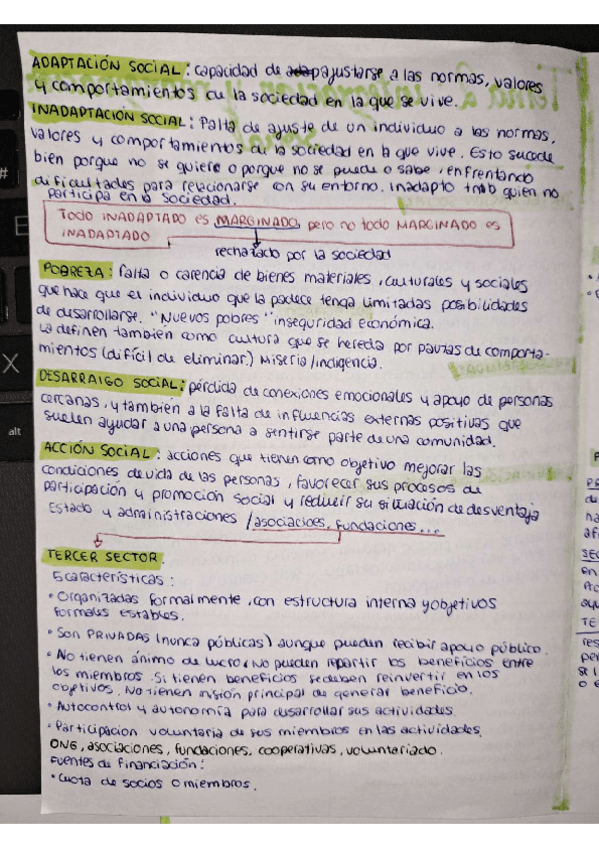 ADAPTACIÓN SOCIAL: capacidad de ajustarse a las normas, valores
y comportamientos de la sociedad en la que se vive.
INADAPTACIÓN SOCIAL: Falta de ajuste de un individuo a las normas,
valores y comportamientos de la sociedad en la que vive. Esto sucede
bien porque no se quiere o porque no se puede o sabe, enfrentando
dificultades para relacionarse con su entorno. inadapto tmb quien no
participa en la sociedad.
TODO INADAPTADO es MARGINADO, pero no todo MARGINADO es
INADAPTADO
rechazado por la sociedad
POBREZA: falta o carencia de bienes materiales, culturales y sociales
que hace que el individuo que la padece tenga limitadas posibilidades
de desarrollarse. "Nuevos pobres" inseguridad económica.
La definen también como cultura que se hereda por pautas de comporta-
mientos (difícil de eliminar) Miseria/indigencia.
DESARRAIGO SOCIAL: pérdida de conexiones emocionales y apoyo de personas
cercanas, y tambien a la falta de influencias externas positivas que
suelen ayudar a una persona a sentirse parte de una comunidad.
ACCIÓN SOCIAL: acciones que tienen como objetivo mejorar las
condiciones de vida de las personas, favorecer sus procesos de
participación y promoción social y reducir su situación de desventaja
Estado y administraciones / asociacioes, fundaciones...
TERCER SECTOR.
5 características:
• Organizadas formalmente, con estructura interna y objetivos
formales estables.
• Son PRIVADAS (nunca públicas) aunque pueden recibir apoyo público.
• No tienen ánimo de lucro. No pueden repartir los beneficios entre
los miembros. Si tienen beneficios se deben reinvertir en los
objetivos. No tienen misión principal de generar beneficio.
• Autocontrol y autonomía para desarrollar sus actividades.
• Participacion voluntaria de sus miembros en las actividades.
ONG, asociaciones, fundaciones, cooperativas, voluntariado.
Fuentes de financiación:
• Cuota de socios o miembros.
alt